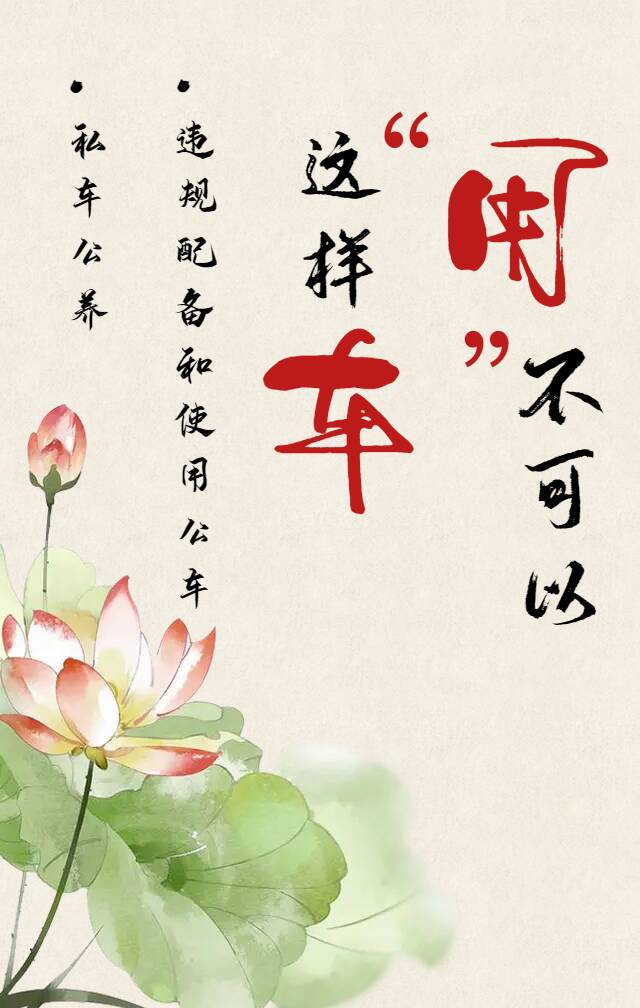 “用”不可以
这样车
• 违规配备和使用公车
• 私车公养